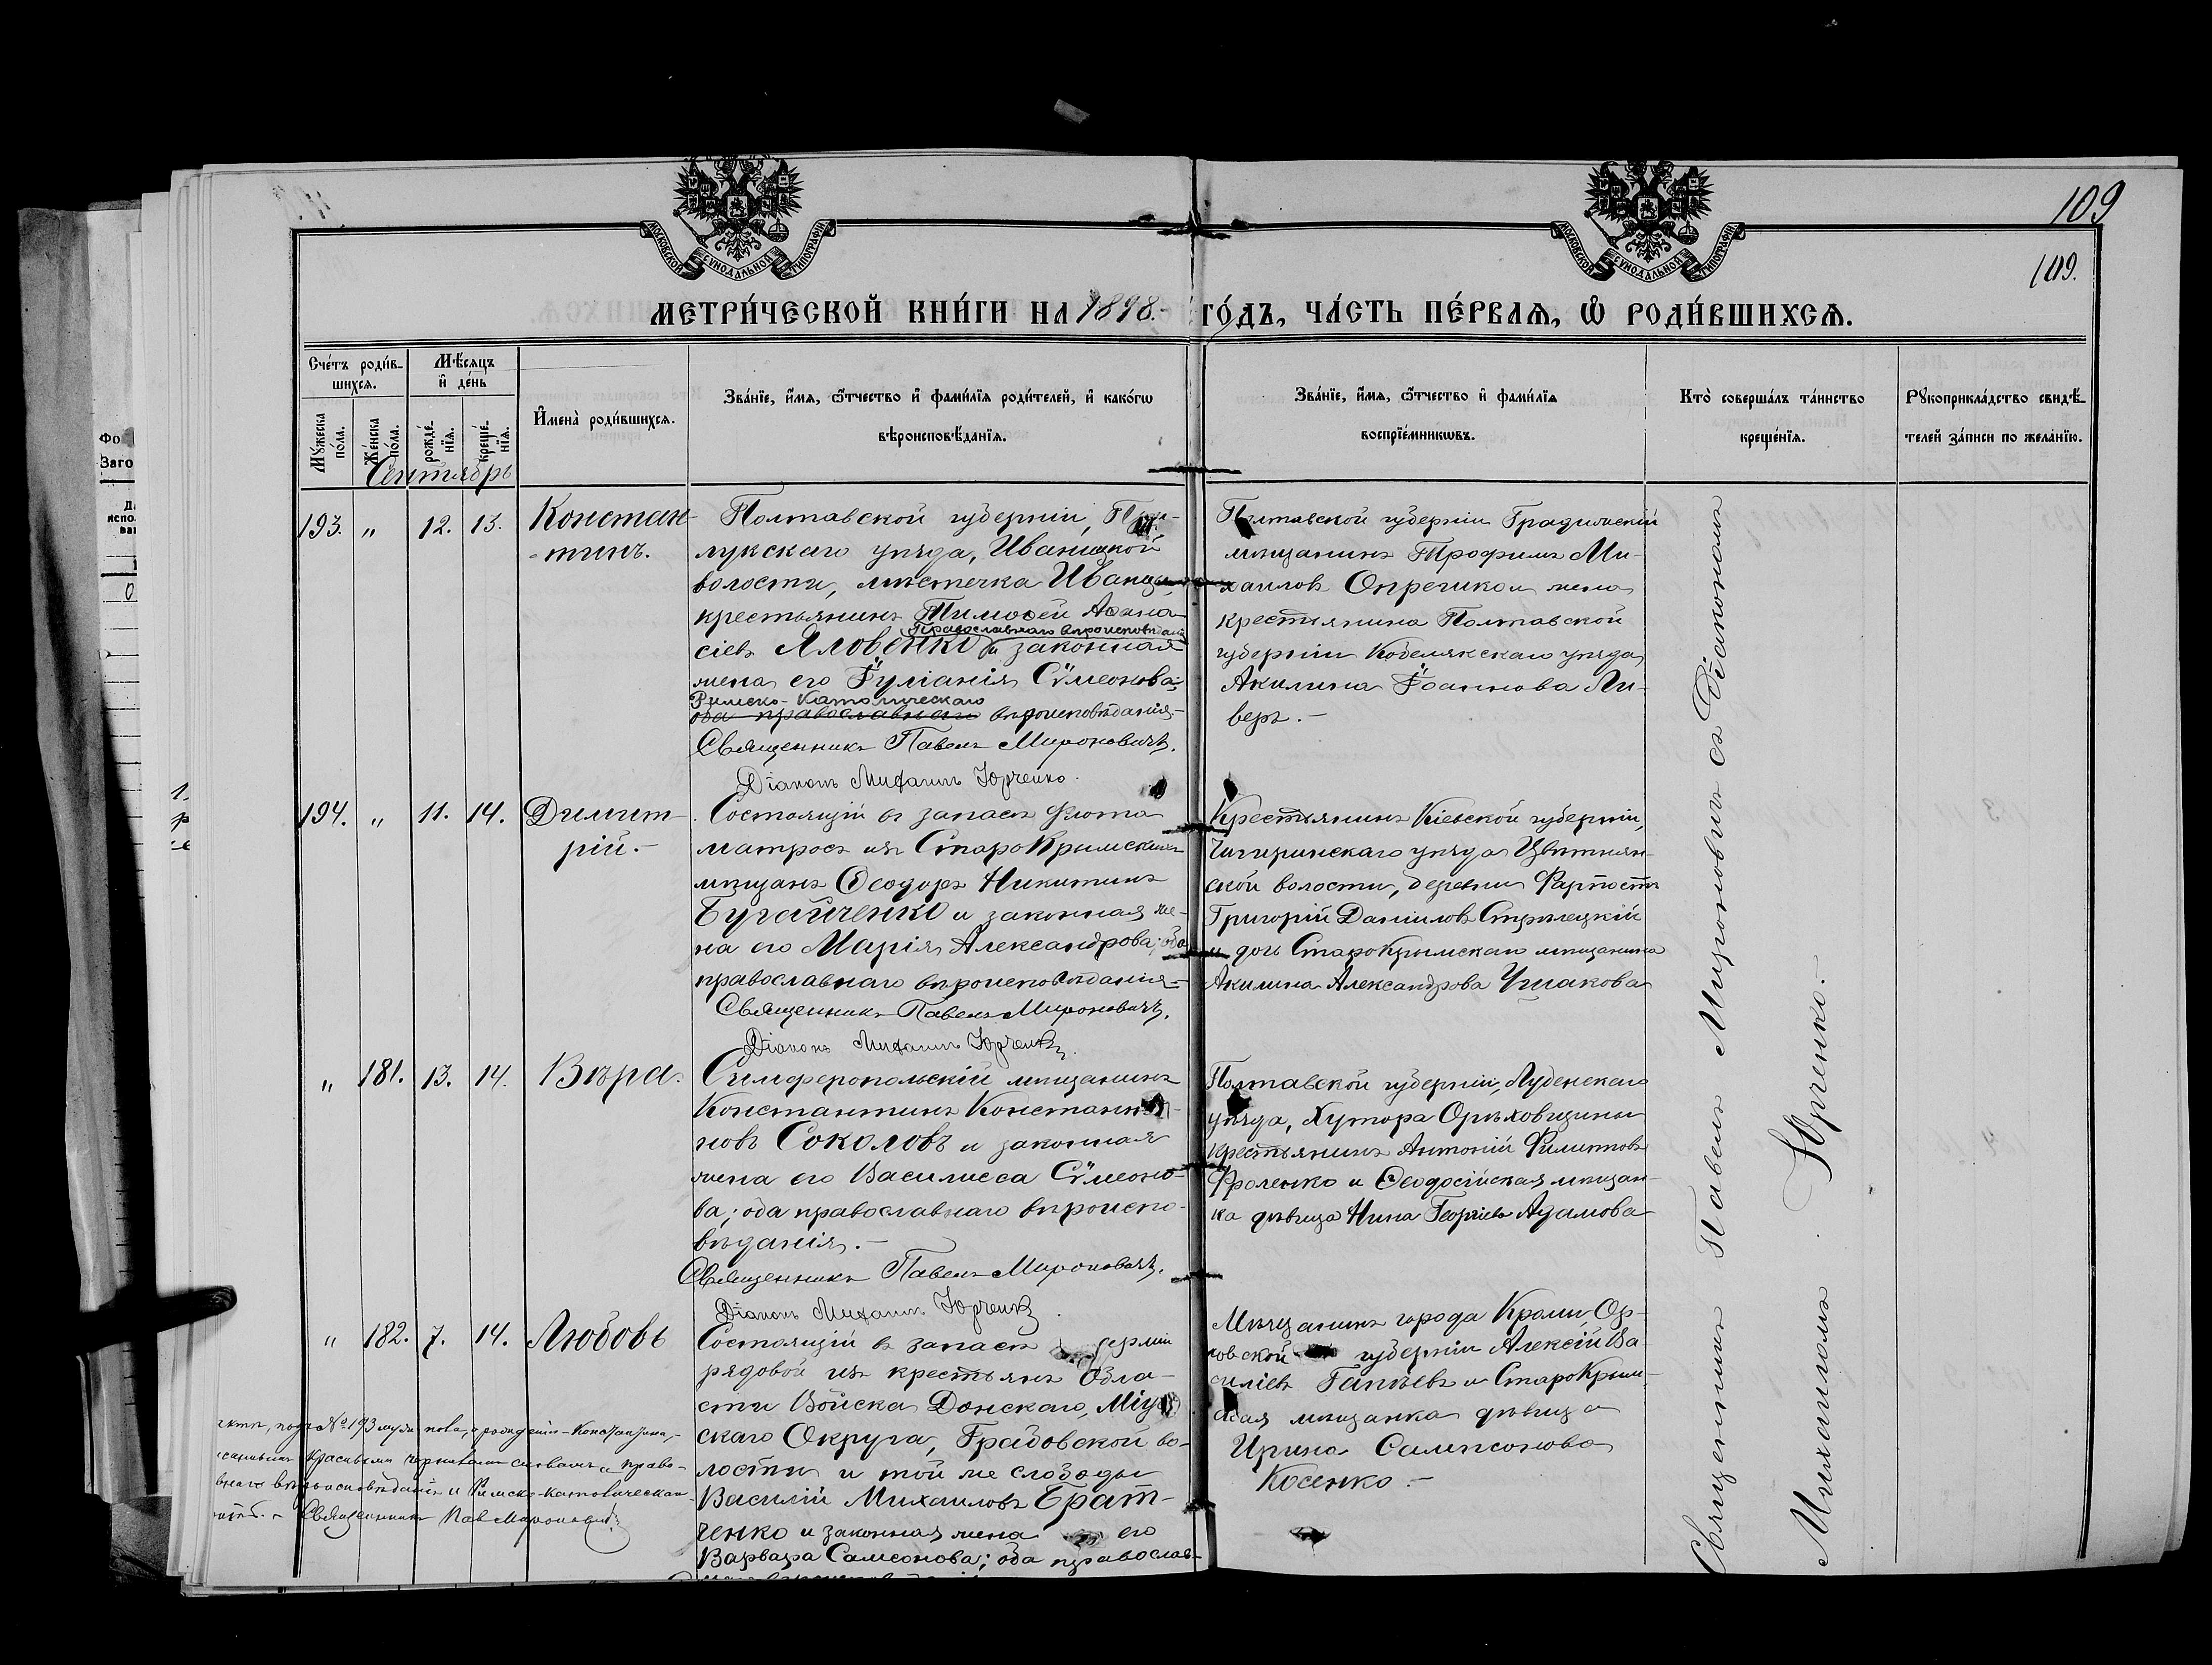 109
109.
МОСКОВСКОЙ СУНОДАЛЬНОЙ ТИПОГРАФІИ
МОСКОВСКОЙ СУНОДАЛЬНОЙ ТИПОГРАФІИ
МЕТРИ́ЧЕСКОЙ КНИ́ГИ НА 1898.- ГО́ДЪ, ЧА́СТЬ ПЕ́РВАѦ, Ѡ РОДИ́ВШИХСѦ.
Сче́тъ роди́в-
шихсѧ.
Мѣ́сѧцъ
и҆ де́нь
Мꙋ́жеска
по́ла.
Же́нска
по́ла.
рожде́-
нїѧ.
креще́-
нїѧ.
И҆мена̀ роди́вшихсѧ.
Зва́нїе, и҆́мѧ, ѻ҆́тчество и҆ фами́лїѧ роди́телей, и҆ како́гѡ
вѣроисповѣ́данїѧ.
Зва́нїе, и҆́мѧ, ѻ҆́тчество и҆ фами́лїѧ
воспрїе́мникѡвъ.
Кто̀ соверша́лъ та́инство
креще́нїѧ.
Рꙋкоприкла́дство свидѣ́-
телей за́писи по жела́нїю.
Сентябрь
193. " 12. 13. Констан-
-тинъ.
Полтавской губерніи, При-
лукскаго уѣзда, Иваницкой
волости, мѣстечка Иваницы,
крестьянинъ Тимоѳей Аѳана-
сіевъ Яловенко и законная
Православнаго вѣроисповѣданія
жена его Іуліанія Сѵмеонова;
Римско-Католическаго
оба православнаго вѣроисповѣданія.-
Священникъ Павелъ Мироновичъ.
Діаконъ Михаилъ Юрченко.
Полтавской губерніи Градижскій
мѣщанинъ Трофимъ Ми-
хаиловъ Опречико и жена
крестьянина Полтавской
губерніи Кобелякскаго уѣзда
Акилина Іоаннова Ли-
веръ.-
194. " 11. 14. Димит-
рій.-
Состоящій въ запасѣ флота
матросъ изъ СтароКрымскихъ
мѣщанъ Ѳеодоръ Никитинъ
Бугайченко и законная же-
на его Марія Александрова; оба
православнаго вѣроисповѣданія-
Священникъ Павелъ Мироновичъ.
Діаконъ Михаилъ Юрченко.
Крестьянинъ Кіевской губерніи,
Чигиринскаго уѣзда Цвѣтнян-
ской волости, деревни Фарпости
Григорій Даніиловъ Стрѣлецкій
и дочь СтароКрымскаго мѣщанина
Акилина Александрова Ушакова
" 181. 13. 14. Вѣра.
Симферопольскій мѣщанинъ
Константинъ Константи-
новъ Соколовъ и законная
жена его Василисса Сѵмеоно-
ва; оба православнаго вѣроиспо-
вѣданія.-
Священникъ Павелъ Мироновичъ.
Діаконъ Михаилъ Юрченко.
Полтавской губерніи, Лубенскаго
уѣзда, Хутора Орѣховщины
крестьянинъ Антоній Филиповъ
Фроленко и Ѳеодосійская мѣщан-
ка дѣвица Нина Георгіева Адамова
" 182. 7. 14. Любовь
Состоящій въ запасѣ арміи
рядовой изъ крестьянъ Обла-
сти Войска Донскаго, Міус-
скаго Округа, Грабовской во-
лости и той же слободы
Василій Михаиловъ Брат-
ченко и законная жена его
Варвара Самсонова; оба православ-
Мѣщанинъ города Кромы, Ор-
ловской губерніи Алексій Ва-
силіевъ Гапѣевъ и СтароКрым-
ская мѣщанка дѣвица
Ирина Сампсонова
Косенко.-
подъ № 193 муж. пола, о рожденіи Константина,-
красными чернилами словамъ „право-
внаго вѣроисповѣданія и Римско-католическаго
Священникъ Пав Мироновичъ
Священникъ Павелъ Мироновичъ съ Діакономъ
Михаиломъ Юрченко.-